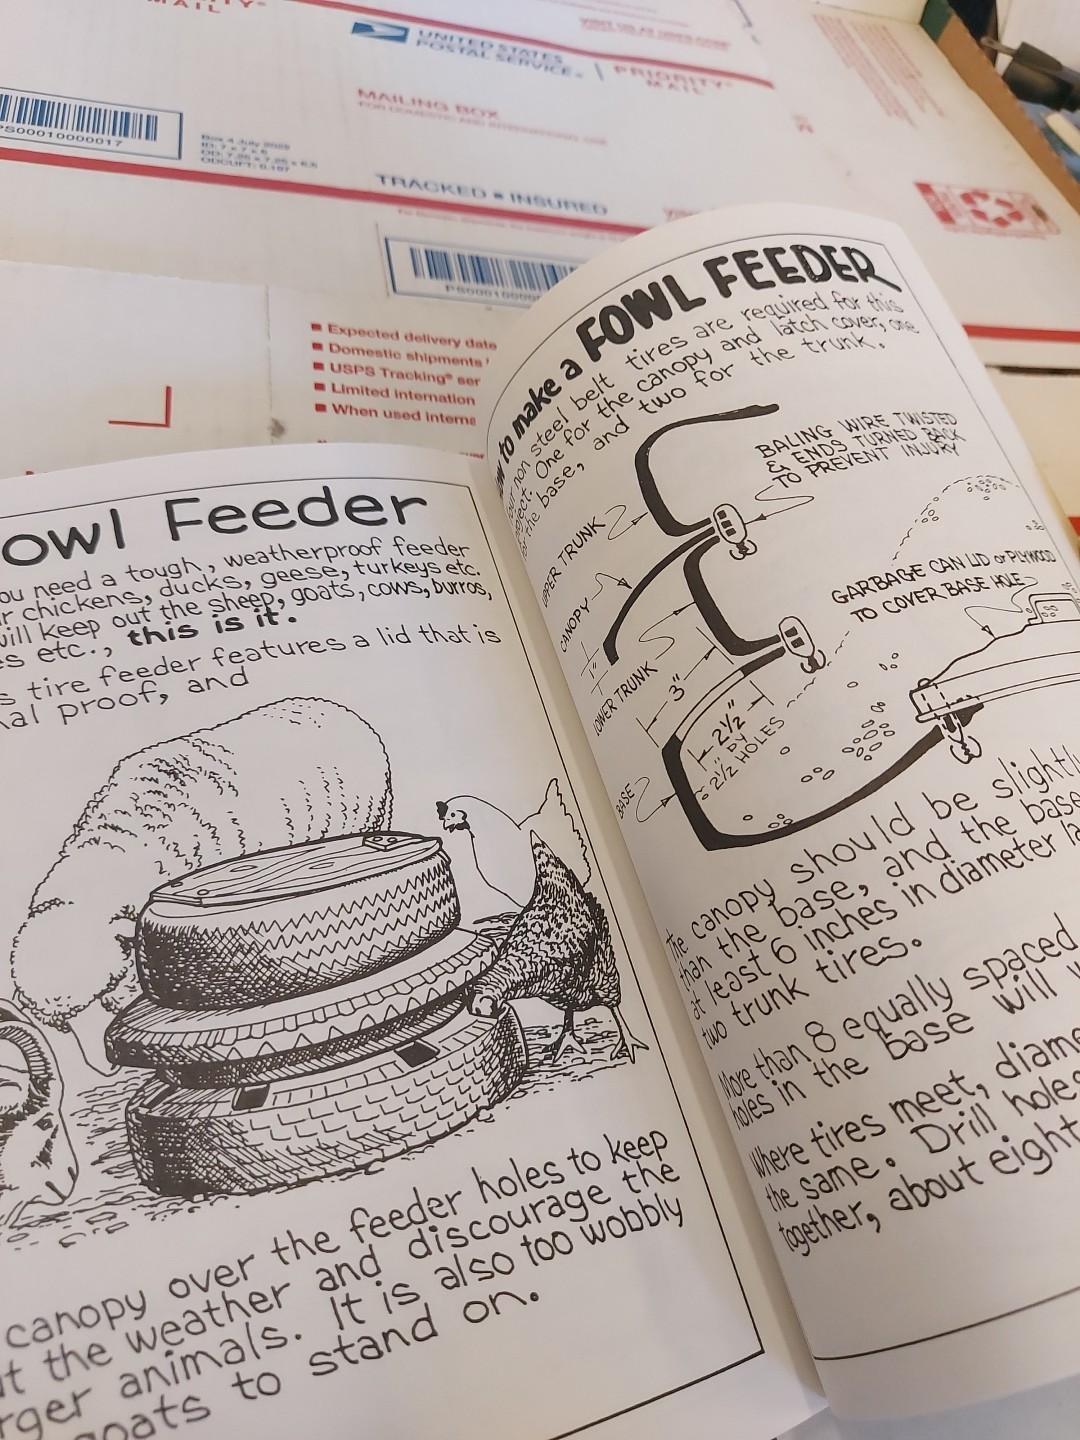 MAIL
UNITED STATES
POSTAL SERVICE®
PRIORITY®
MAIL
MAILING BOX
PS00010000017
TRACKED ■ INSURED
■ Expected delivery date
■ Domestic shipments
■ USPS Tracking® ser
■ Limited internation
■ When used interna
owl Feeder
ou need a tough, weatherproof feeder
r chickens, ducks, geese, turkeys etc.
will keep out the sheep, goats, cows, burros,
es etc., this is it.
s tire feeder features a lid that is
al proof, and
canopy over the feeder holes to keep
ut the weather and discourage the
rger animals. It is also too wobbly
goats to stand on.
to make a FOWL FEEDER
our non steel belt tires are required for this
One for the canopy and latch cover, one
for the base, and two for the trunk.
BALING WIRE TWISTED
& ENDS TURNED BACK
TO PREVENT INJURY
UPPER TRUNK
CANOPY
1"
LOWER TRUNK
GARBAGE CAN LID or PLYWOOD
TO COVER BASE HOLE
3"
2½"
BY
2½" HOLES
BASE
The canopy should be slightly
than the base, and the base
at least 6 inches in diameter la
two trunk tires.
More than 8 equally spaced
holes in the base will w
Where tires meet, diame
the same. Drill holes
together, about eight